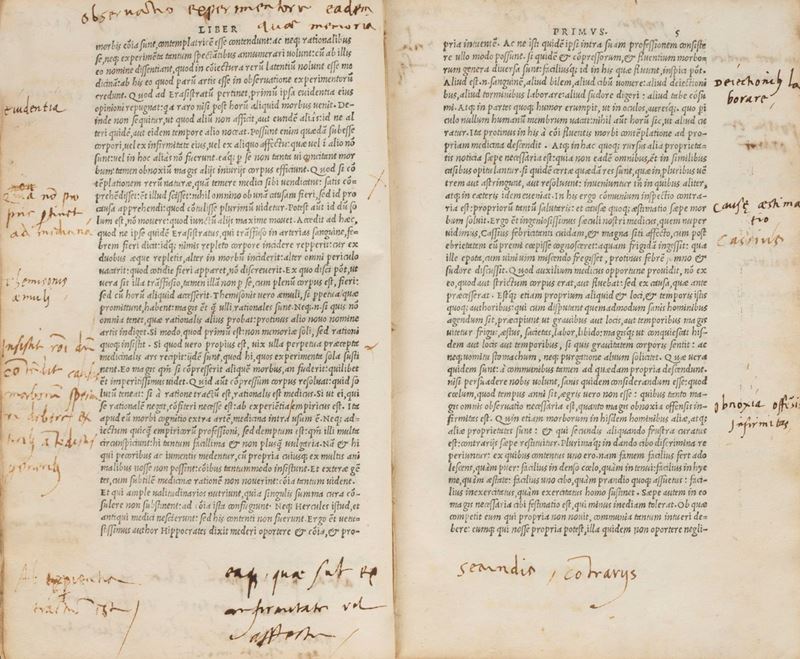 obseruatio experimentorum eadem
quae memoria
LIBER
morbis cõia sunt, contemplatricẽ esse contendunt: ac neq; rationalibus
se, neq; experimẽta tantum spectãtibus annumerari uolunt: cũ ab illis
eo nomine dissentiant, quod in cõiectura rerũ latentiũ nolunt esse me
dicinã: ab his eo quod parũ artis esse in obseruatione experimentorũ
credunt. Quod ad Erasistratũ pertinet, primũ ipsa euidentia eius
opinioni repugnat: ꝗa raro nisi post horũ aliquid morbus uenit. De-
inde non sequitur, ut quod aliũ non afficit, aut eundẽ aliàs: id ne al
teri quidẽ, aut eidem tempore alio noceat. Possunt enim quædã subesse
corpori, uel ex infirmitate eius, uel ex aliquo affectu: quæ uel ĩ alio nõ
sunt: uel in hoc aliàs nõ fuerunt. eaq; p se non tanta ut cõcitent mor
bum: tamen obnoxiũ magis alijs iniurijs corpus efficiunt. Quod si cõ
tẽplationem rerũ naturæ, quã temere medici sibi uendicant: satis cõm
prehẽdisset: ẽt illud scisset: nihil omnino ob unã causam fieri, sed id pro
causa apprehendi: quod cõtulisse plurimũ uidetur. Potest aũt id dũ so
lum est, nõ mouere: quod iunctũ alijs maxime mouet. Accedit ad hæc,
quod ne ipse quidẽ Erasistratus, qui trãsfuso in arterias sanguine, fe
brem fieri dicit: idq; nimis repleto corpore incidere repperit: cur ex
duobus æque repletis, alter in morbũ incidit: alter omni periculo
uacarit: quod cotidie fieri apparet, nõ discreuerit. Ex quo disci põt, ut
uera sit illa trãsfusio, tamẽ illã non p se, cum plenũ corpus est, fieri:
sed cũ horũ aliquid accesserit. Themisonis uero æmuli, si ppetua quæ
promittunt, habent: magis ẽt q̃ ulli rationales sunt. Neq; n. si quis nõ
omnia tenet, quæ rationalis alius probat: protinus alio nouo nomine
artis indiget. Si modo, quod primũ est: non memoriæ soli, sed rationi
quoq; insistit. Si quod uero propius est, uix ulla perpetua præcepta
medicinalis ars recipit: ijdẽ sunt, quod hi, quos experimenta sola susti
nent. Eo magis qm̃ si cõpresserit aliquẽ morbus, an fuderit: quilibet
ẽt imperitissimus uidet. Quid aũt cõpressum corpus resoluat: quid so
lutũ teneat: si à ratione tractũ est, rationalis est medicus. Si ut ei, qui
se rationalẽ negat, cõfiteri necesse est: ab experiẽtia: empiricus est. Ita
apud eũ morbi cognitio extra artẽ, medicina intra usum est. Neq; ad-
iectũ quicquam empiricorũ professioni, sed demptum est: qm̃ illi multa
circunspiciunt: hi tantum facillima & non plusq; uulgaria. Nã & hi
qui pecoribus ac iumentis medentur, cũ propria cuiusq; ex mutis ani
malibus nosse non possint: cõibus tantummodo insistunt. Et exteræ gẽ
tes, cum subtilẽ medicinæ rationẽ non nouerint: cõia tantum uident.
Et qui ampla ualitudinarios nutriunt, quia singulis summa cura cõ
sulere non sustinent: ad cõia ista confugiunt. Neq; Hercules istud, et
antiqui medici nescierunt: sed his contenti non fuerunt. Ergo ẽt uetu-
stissimus author Hippocrates dixit mederi oportere & cõia, & pro-
euidentia
Themisonis
æmuli
eaq; quae sub ex
infirmitate vel
affectu
PRIMVS. 5
pria intuentẽ. Ac ne isti quidẽ ipsi intra suam professionem consiste
re ullo modo possunt. Si quidẽ & cõpressorum, & fluentium morbo-
rum genera diuersa sunt: faciliusq; id in his quæ fluunt, inspici põt.
Aliud est. n. sanguinẽ, aliud bilem, aliud cibũ uomere: aliud deiectioni
bus, aliud torminibus laborare: aliud sudore digeri: aliud tabe cõsu
mi. Atq; in partes quoq; humor erumpit, ut in oculos, aureisq;. quo pi
culo nullum humanũ membrum uacat: nihil aũt horũ sic, ut aliud cu
ratur. Ita protinus in his à cõi fluentis morbi cõtẽplatione ad pro-
priam medicina descendit. Atq; in hac quoq; rursus alia proprieta-
tis noticia sæpe necessaria est: quia non eadẽ omnibus, ẽt in similibus
casibus opitulantur. Si quidẽ certæ quædã res sunt, quæ in pluribus uẽ
trem aut astringunt, aut resoluunt: inueniuntur ĩn in quibus aliter,
atq; in cæteris idem eueniat. In his ergo cõmunium inspectio contra
ria est: propriorũ tantũ salutaris: et causæ quoq; æstimatio sæpe mor
bum soluit. Ergo ẽt ingeniosissimus sæculi nostri medicus, quem nuper
uidimus, Cassius febricitanti cuidam, & magna siti affecto, cum post
ebrietatem eũ premi cœpisse cognosceret: aquam frigidã ingessit: qua
ille epota, cum uini uim miscendo fregisset, protinus febrẽ somno &
sudore discussit. Quod auxilium medicus opportune prouidit, nõ ex
eo, quod aut strictum corpus erat, aut fluebat: sed ex causa, quæ ante
præcesserat. Estq; etiam proprium aliquid & loci, & temporis istis
quoq; authoribus: qui cum disputent quemadmodum sanis hominibus
agendum sit, præcipiunt ut grauibus aut locis, aut temporibus magis
uitetur frigus, æstus, satietas, labor, libido: magisq; ut conquiescat his-
dem aut locis aut temporibus, si quis grauitatem corporis sentit: ac
neq; uomitu stomachum, neq; purgatione aluum solicitet. Quæ uera
quidem sunt: à communibus tamen ad quædam propria descendunt.
nisi persuadere nobis uolunt, sanis quidem considerandum esse: quod
cœlum, quod tempus anni sit, ægris uero non esse: quibus tanto ma-
gis omnis obseruatio necessaria est, quanto magis obnoxia offensis in-
firmitas est. Quin etiam morborum in hisdem hominibus aliæ, atq;
aliæ proprietates sunt: & qui secundis aliquando frustra curatus
est: contrarijs sæpe restituitur. Plurimaq; in dando cibo discrimina re
periuntur: ex quibus contentus uno ero. nam famem facilius fert ado
lescens, quàm puer: facilius in denso cœlo, quàm in tenui: facilius in hye
me, quàm æstate: facilius uno cibo, quàm prandio quoq; assuetus: faci-
lius inexercitatus, quàm exercitatus homo sustinet. Sæpe autem in eo
magis necessaria cibi festinatio est, qui minus inediam tolerat. Ob quæ
competit eum qui propria non nouit, communia tantum intueri de-
bere: eumq; qui nosse propria potest, illa quidem non oportere negli-
Deiectionib. la
borare
Causæ æstima
tio
Cassius
obnoxia offensis
infirmitas
secundis, cõtrarijs